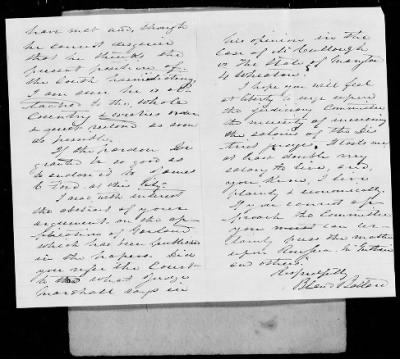 have met and, though
he cannot disguise
that he thinks the
present position of
the South humiliating,
I am sure he is at-
tached to the whole
Country & wishes order
& quiet restored as soon
as possible.
If the pardon be
granted be so good as
to enclosed to James
C Ford at this City.
I read with interest
the abstract of your
argument on the ap-
plication of Garland
which has been published
in the papers. Did
you refer the Court
to what Judge
Marshall says in
his opinion in the
Case of McCullough
vs The State of Maryland
4 Wheaton?
I hope you will feel
at liberty to urge upon
the Judiciary Committee
the necessity of increasing
the salaries of the Dis-
trict Judges. It costs me
at least double my
salary to live, and,
you know, I live
plainly & economically.
If you cannot ap-
proach the Committee
you can
press the matter
upon
and others.
Respectfully
Bland Ballard